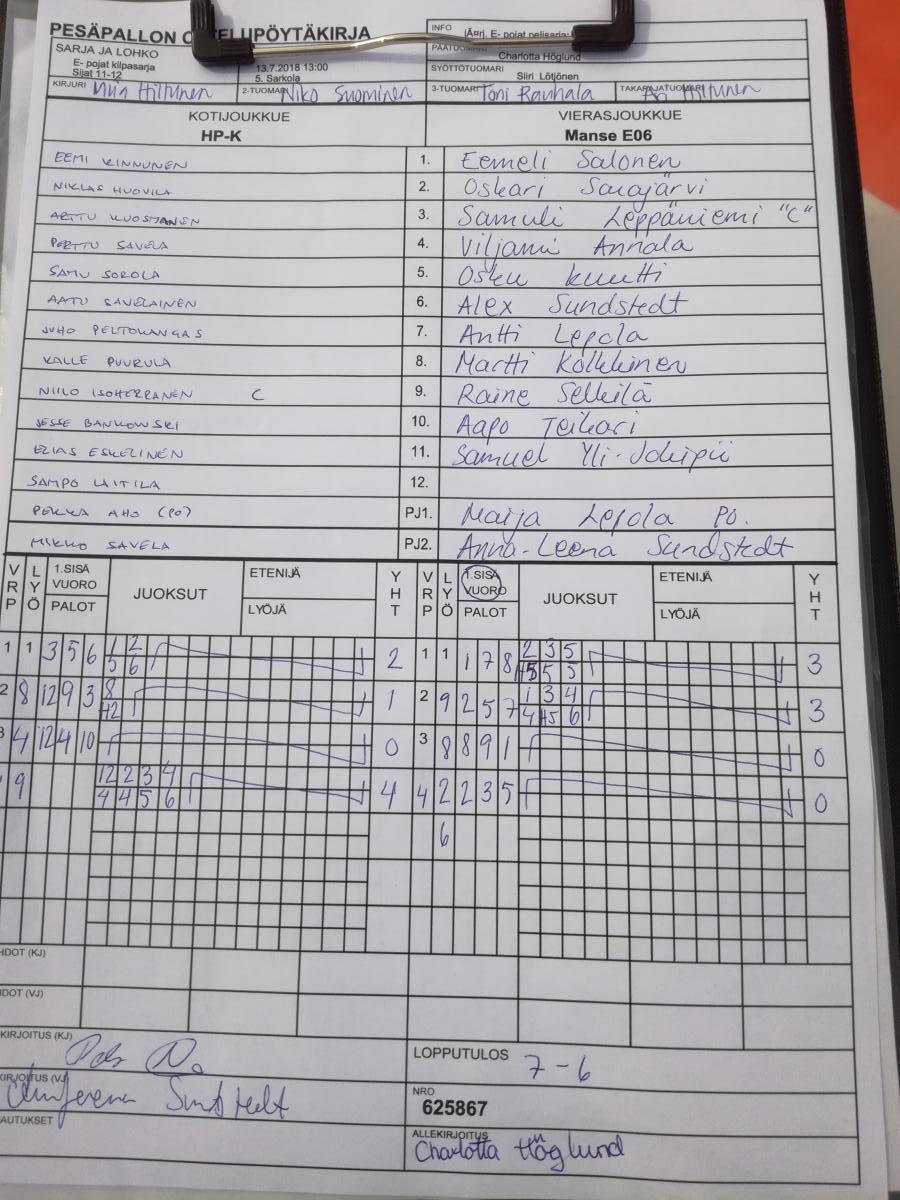 PESÄPALLON O TELUPÖYTÄKIRJA
INFO E- pojat
SARJA JA LOHKO
E- pojat kilpasarja
Sijat 11-12
13.7.2018 13:00
5. Sarkola
Charlotta Höglund
SYÖTTÖTUOMARI Siiri Lötjönen
KIRJURI Hiltunen 2-TUOMARI Niko Suominen 3-TUOMARI Toni Rauhala TAKARAJATUOMARI Hiltunen
KOTIJOUKKUE VIERASJOUKKUE
HP-K Manse E06
EEMI KINNUNEN 1. Eemeli Salonen
NIKLAS HUOVILA 2. Oskari Savajärvi
ARTTU KUOSMANEN 3. Samuli Leppäniemi "C"
PERTTU SAVELA 4. Viljami Annala
SAMU SOROLA 5. Osku Kuutti
AATU SAVELAINEN 6. Alex Sundstedt
JUHO PELTOKANGAS 7. Antti Lepola
KALLE PUURULA 8. Martti Kolkkinen
NIILO ISOHERRANEN C 9. Raine Selkilä
JESSE BANKOWSKI 10. Aapo Teikari
ELIAS ESKELINEN 11. Samuel Yli-Jokipii
SAMPO LAITILA 12.
PEKKA AHO (PO) PJ1. Maija Lepola PO.
MIKKO SAVELA PJ2. Anna-Leena Sundstedt
VRP LYÖ 1.SISÄ VUORO PALOT JUOKSUT ETENIJÄ LYÖJÄ YHT VRP LYÖ 1.SISÄ VUORO PALOT JUOKSUT ETENIJÄ LYÖJÄ YHT
1 1 3 5 6 1 2 2 1 1 1 7 8 2 3 5 3
5 6 5 5
2 8 12 9 3 8 1 2 9 2 5 7 1 3 4 3
H2 4 H5 6
3 4 12 4 10 0 3 8 8 9 1 0
9 12 2 3 4 4 4 2 2 3 5 0
4 4 5 6 6
HDOT (KJ)
HDOT (VJ)
KIRJOITUS (KJ) LOPPUTULOS 7-6
KIRJOITUS (VJ) NRO
625867
AUTUKSET ALLEKIRJOITUS
Charlotta Höglund